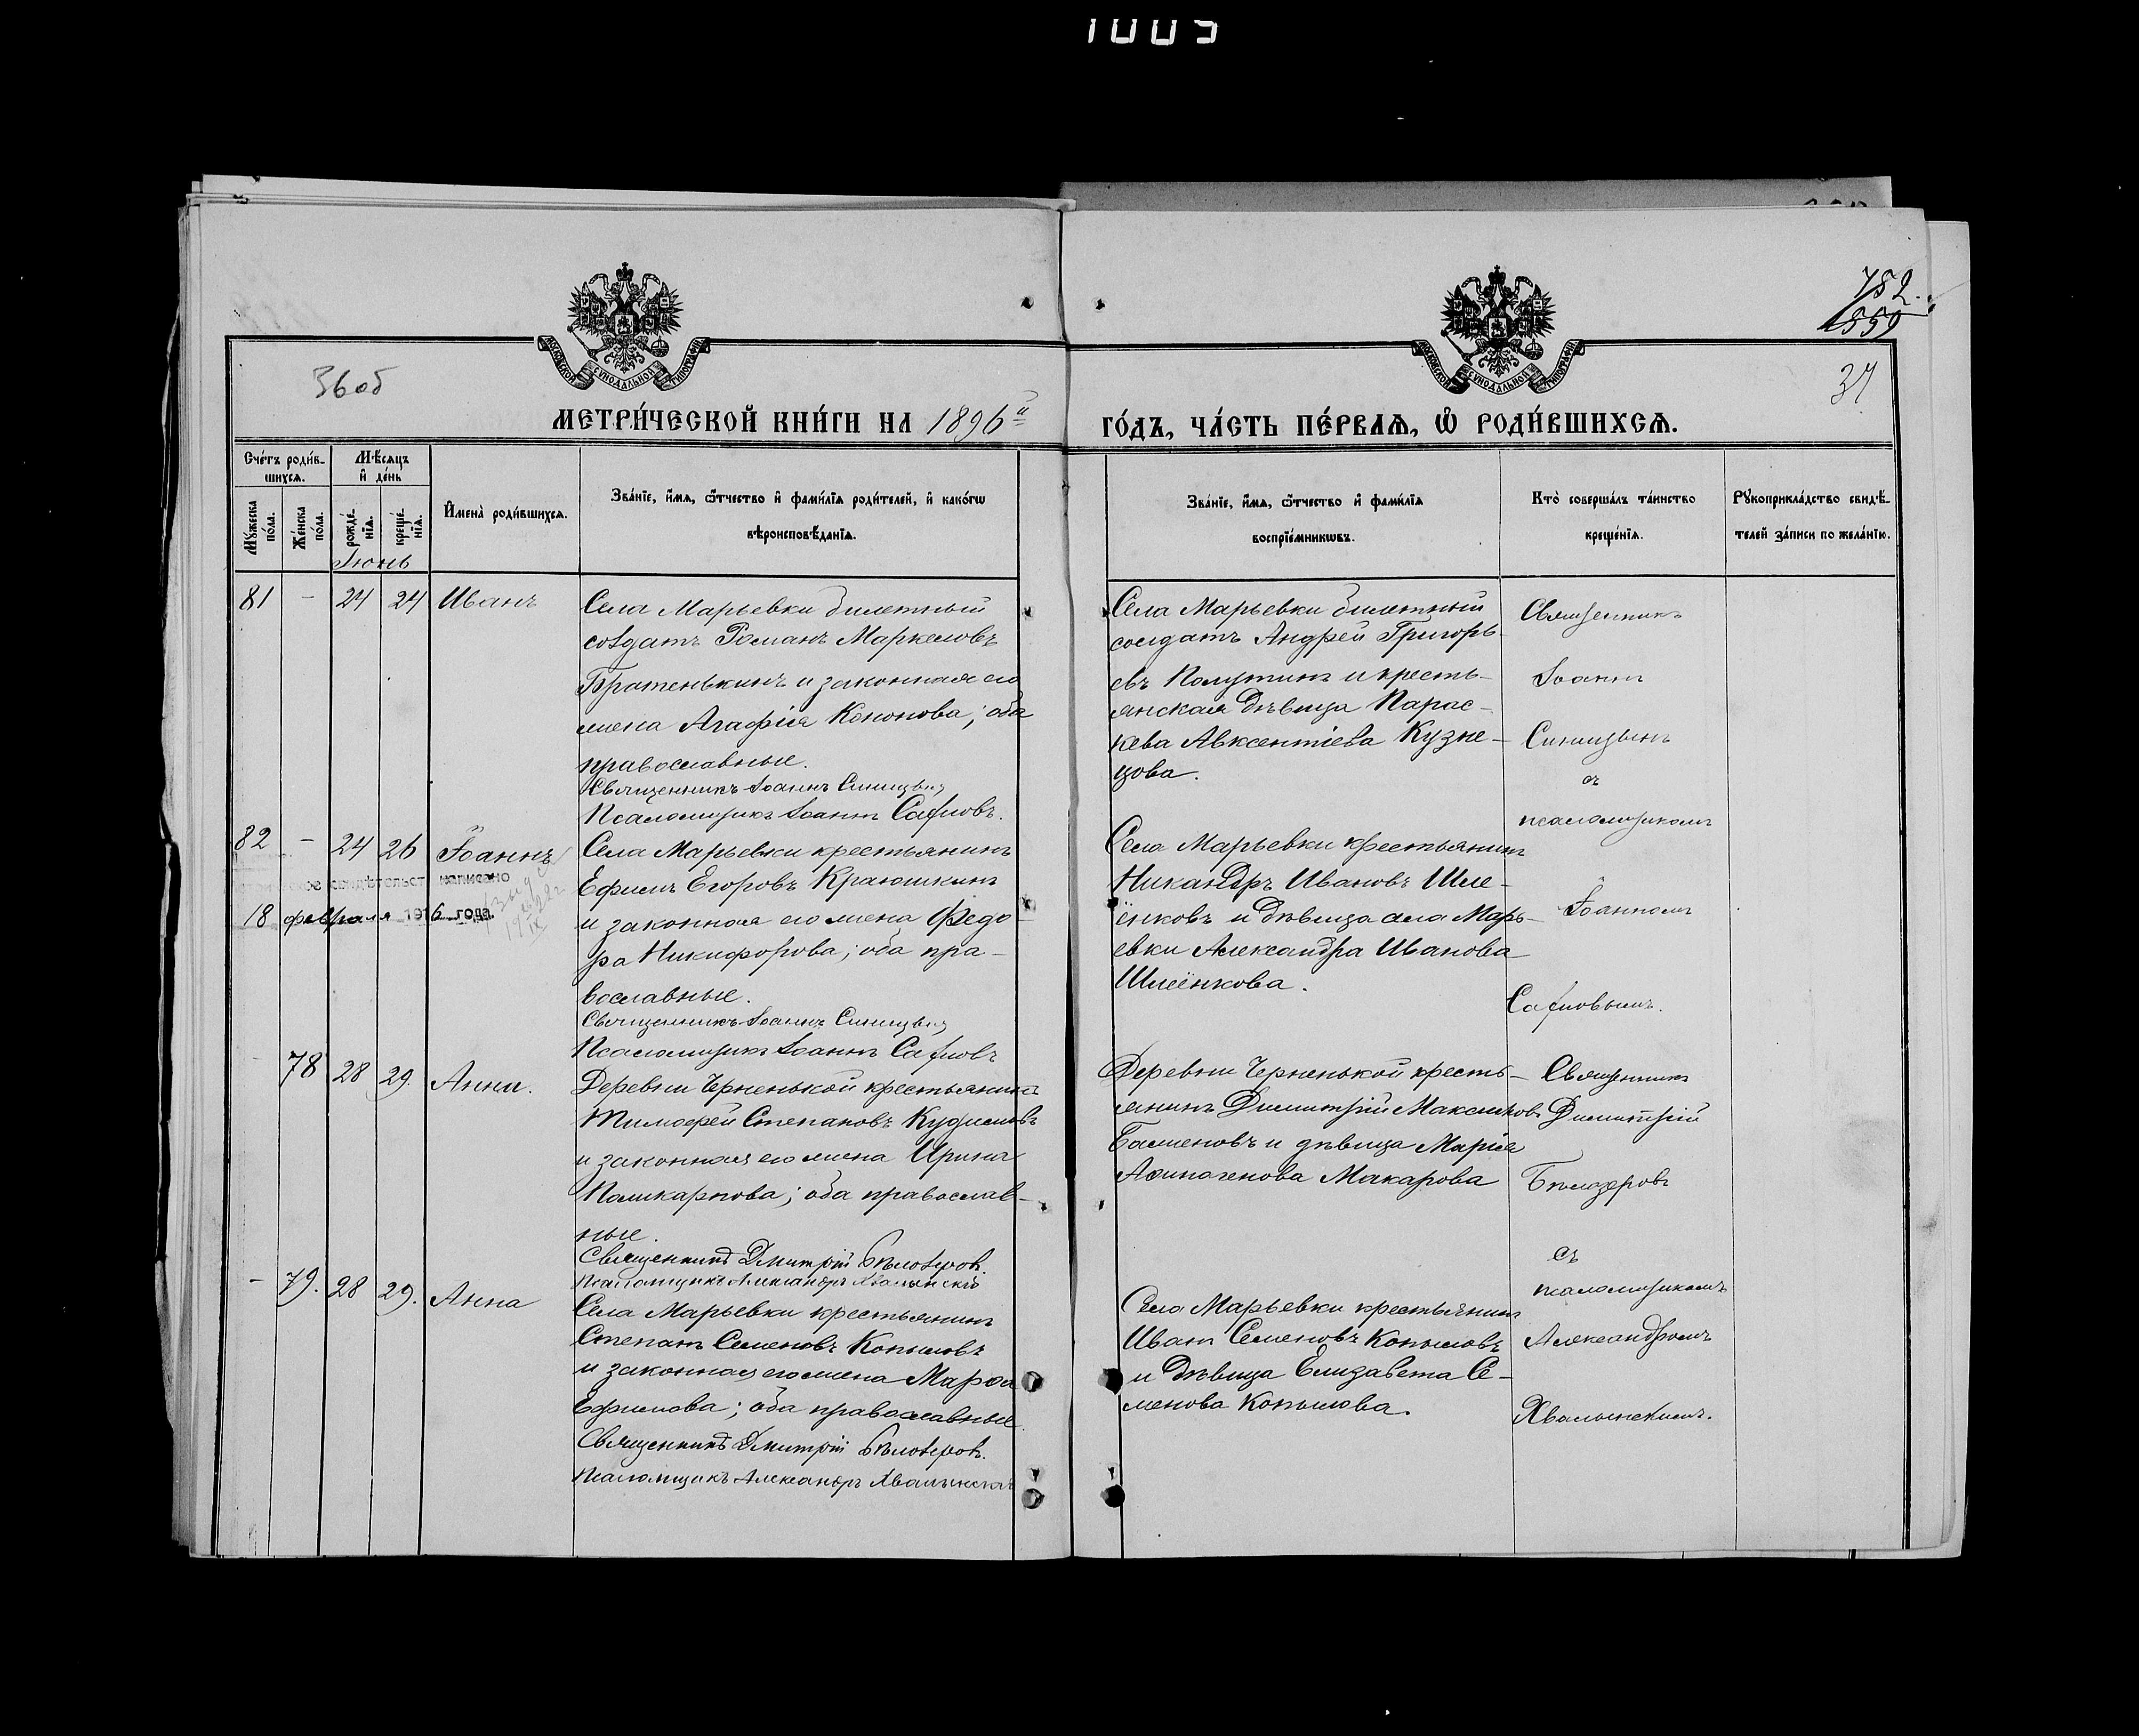 1005
782.
559
36об
37
МЕТРИ́ЧЕСКОЙ КНИ́ГИ НА 1896й
ГО́ДЪ, ЧА́СТЬ ПЕ́РВАѦ, Ѽ РОДИ́ВШИХСѦ.
Сче́тъ роди́в-
шихсѧ.
Мѣ́сяцъ
и҆ де́нь
Мꙋ́жеска
по́ла.
Же́нска
по́ла.
рожде́-
нїѧ.
креще́-
нїѧ.
Іюнь
И҆мена̀ роди́вшихсѧ.
Зва́нїе, и҆́мѧ, ѻ҆́тчество и҆ фами́лїѧ роди́телей, и҆ како́гѡ
вѣроисповѣ́данїѧ.
Зва́нїе, и҆́мѧ, ѻ҆́тчество и҆ фами́лїѧ
воспрїе́мникѡвъ.
Кто̀ соверша́лъ та́инство
креще́нїѧ.
Рꙋкоприкла́дство свидѣ́-
телей за́писи по жела́нїю.
81 - 24 24 Иванъ
Села Марьевки билетный
солдатъ Романъ Маркеловъ
Братенькинъ и законная его
жена Агафія Кононова; оба
православные.
Священникъ Іоаннъ Синицынъ
Псаломщикъ Іоаннъ
Села Марьевки билетный
солдатъ Андрей Григорь-
евъ Полутинъ и кресть-
янская дѣвица Парас-
кева Авксентіева Кузне-
цова.
Священникъ
Іоаннъ
Синицынъ
съ
псаломщикомъ
Іоанномъ
82 - 24 26 Іоаннъ
свидѣтельст написано
18 февраля 1916 года.
Села Марьевки крестьянинъ
Ефимъ Егоровъ Краюшкинъ
и законная его жена Федо
ра Никифорова; оба пра-
вославные.
Священникъ Іоаннъ Синицынъ
Псаломщикъ Іоаннъ
Села Марьевки крестьянинъ
Никандръ Ивановъ Шле-
ёнковъ и дѣвица села Марь-
евки Александра Иванова
Шлеёнкова.
- 78 28 29. Анна.
Деревни Черненькой крестьянинъ
Тимофей Степановъ Кудимовъ
и законная его жена Ирина
Поликарпова; оба православ-
ные.
Священникъ Дмитрій Бѣлозеровъ.
Псаломщикъ Александръ Хвалынскій
Деревни Черненькой кресть-
янинъ Димитрій Максимовъ
Баженовъ и дѣвица Марія
Аѳиногенова Макарова
Священникъ
Димитрій
Бѣлозеровъ
съ
псаломщикомъ
Александромъ
Хвалынскимъ.
- 79. 28 29. Анна
Села Марьевки крестьянинъ
Степанъ Семеновъ Копыловъ
и законная его жена Марѳа
Ефимова; оба православные.
Священникъ Дмитрій Бѣлозеровъ.
Псаломщикъ Александръ Хвалынскій
Села Марьевки крестьянинъ
Иванъ Семеновъ Копыловъ
и дѣвица Елизавета Се-
менова Копылова.